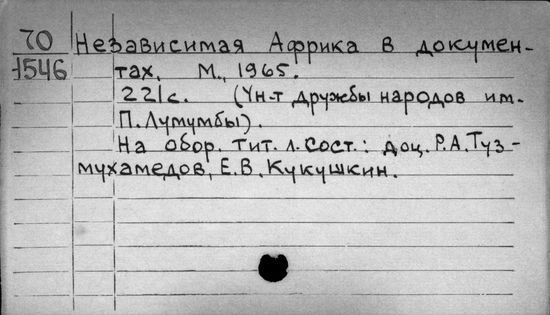 70 Независимая Африка в докумен-
1546 тах. М., 1965.
221с. (Ун-т дружбы народов им.
П. Лумумбы).
На обор. тит. л. сост.: доц. Р.А. Туз-
мухамедов, Е.В. Кукушкин.